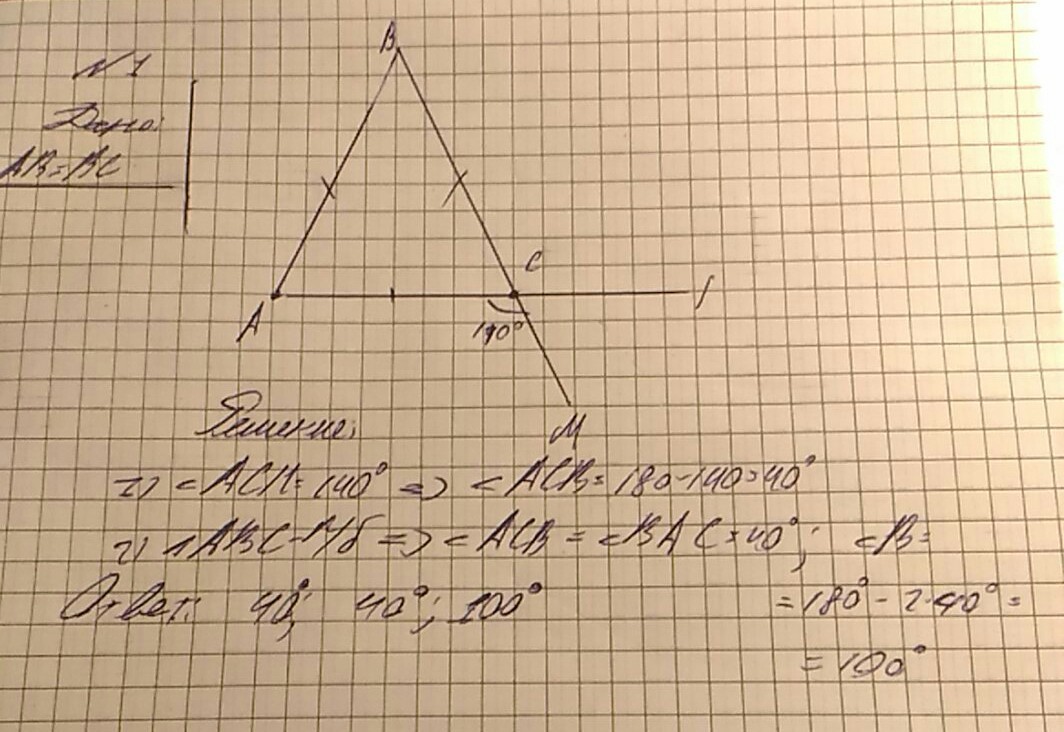 N 1
Дано:
AB = BC
B
A
C
M
Решение:
1) <ACM = 140° => <ACB = 180-140=40°
2) △ABC-р/б => <ACB = <BAC = 40°; <B =
= 180° - 2·40° =
= 100°
Ответ: 40°; 40°; 100°